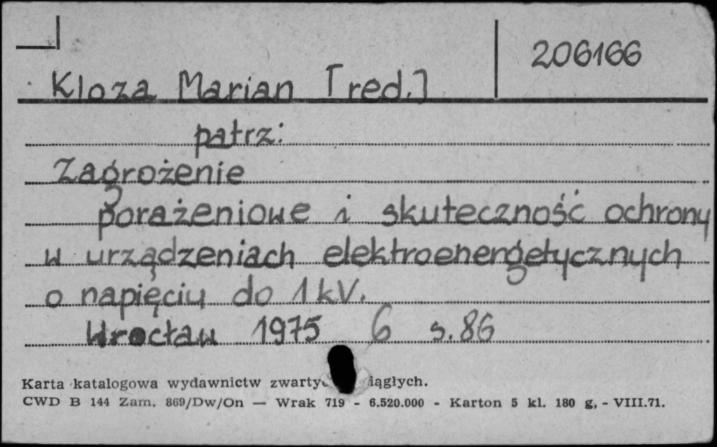 206166
Kloza Marian [red.]
patrz:
Zagrożenie
porażeniowe i skuteczność ochrony
w urządzeniach elektroenergetycznych
o napięciu do 1 kV.
Wrocław 1975 6 s. 86
Karta katalogowa wydawnictw iągłych.
CWD B 144 Zam. 869/Dw/On — Wrak 719 - 6.520.000 - Karton 5 kl. 180 g. - VIII.71.